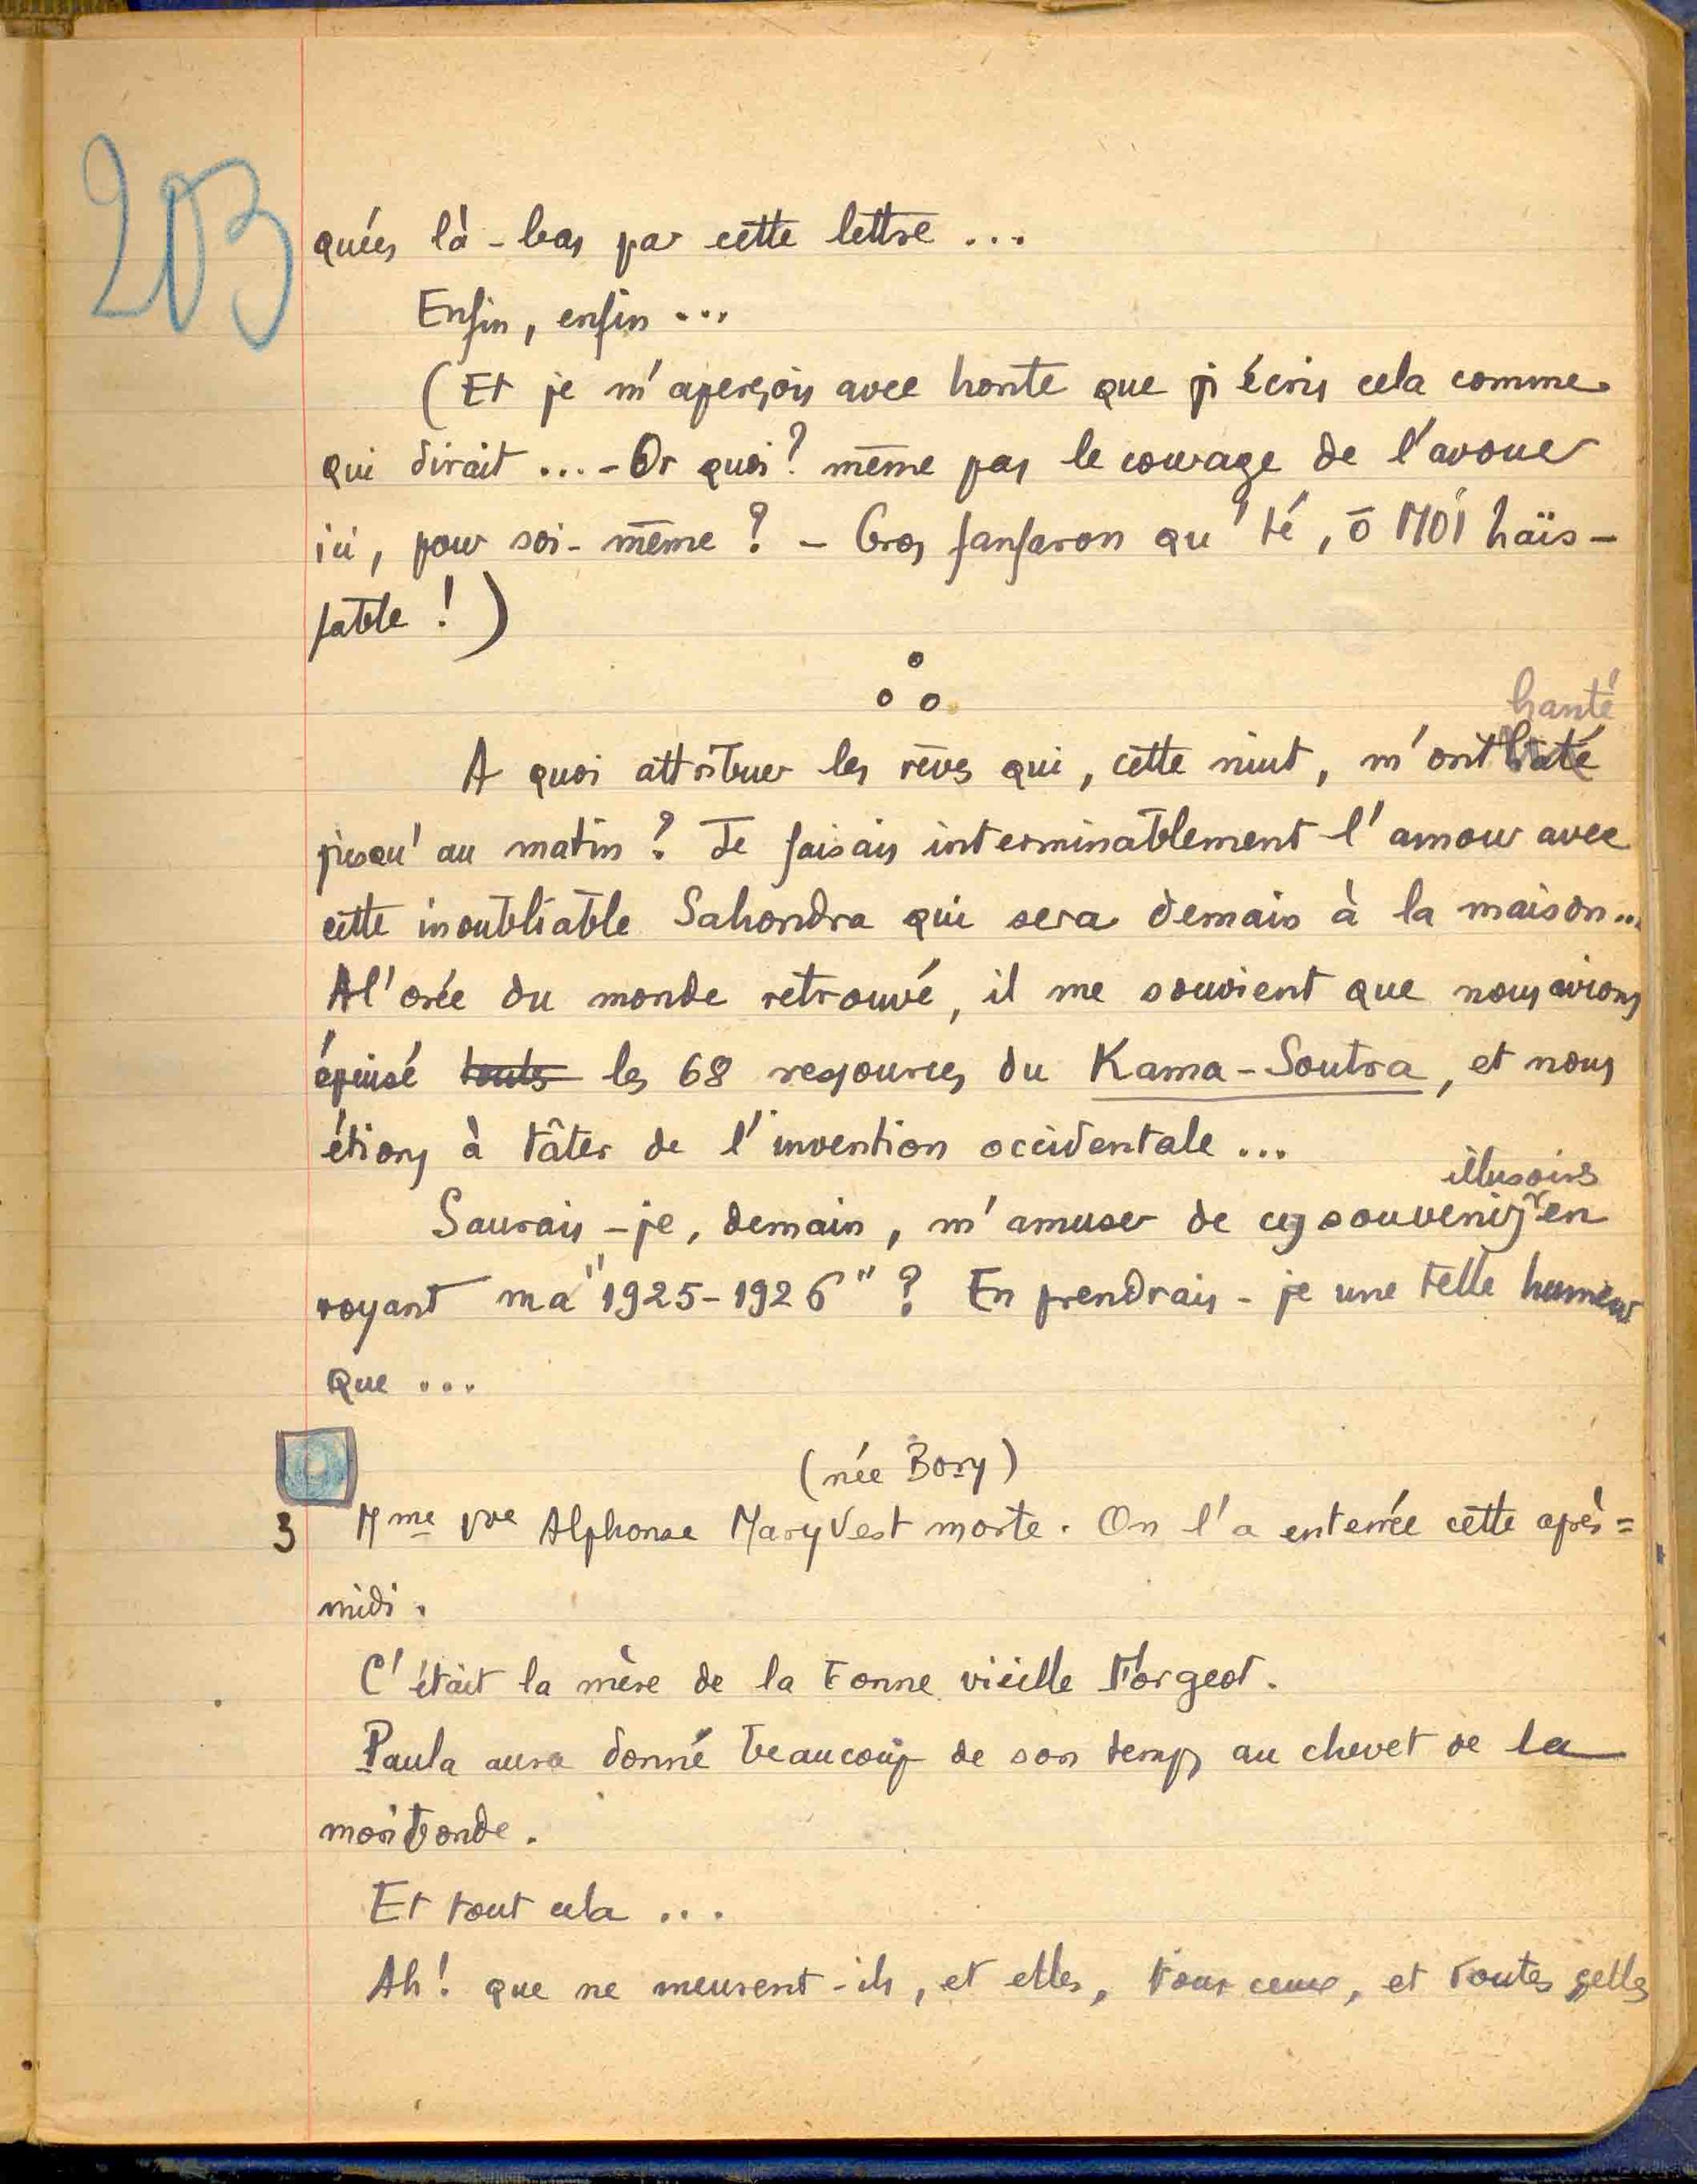 203
quées là-bas par cette lettre ...
Enfin, enfin ...
(Et je m'aperçois avec honte que j'écris cela comme
qui dirait ... - Or quoi ? même pas le courage de l'avouer
ici, pour soi-même ? - Gros fanfaron qu'té, ô MOI haïs-
sable ! )
hanté
A quoi attribuer les rêves qui, cette nuit, m'ont
jusqu'au matin ? Je faisais interminablement l'amour avec
cette inoubliable Sahondra qui sera demain à la maison...
A l'orée du monde retrouvé, il me souvient que nous avions
épuisé toutes les 68 ressources du Kama-Soutra, et nous
étions à tâter de l'invention occidentale ...
illusoires
Saurais-je, demain, m'amuser de ces souvenirs en
voyant ma "1925-1926" ? En prendrais-je une telle humeur
que ...
(née Bory)
3 Mme Vve Alphonse Mary est morte. On l'a enterrée cette après=
midi.
C'était la mère de la bonne vieille Forgeot.
Paula aura donné beaucoup de son temps au chevet de la
moribonde.
Et tout cela ...
Ah! que ne meurent-ils, et elles, tous ceux, et toutes celles